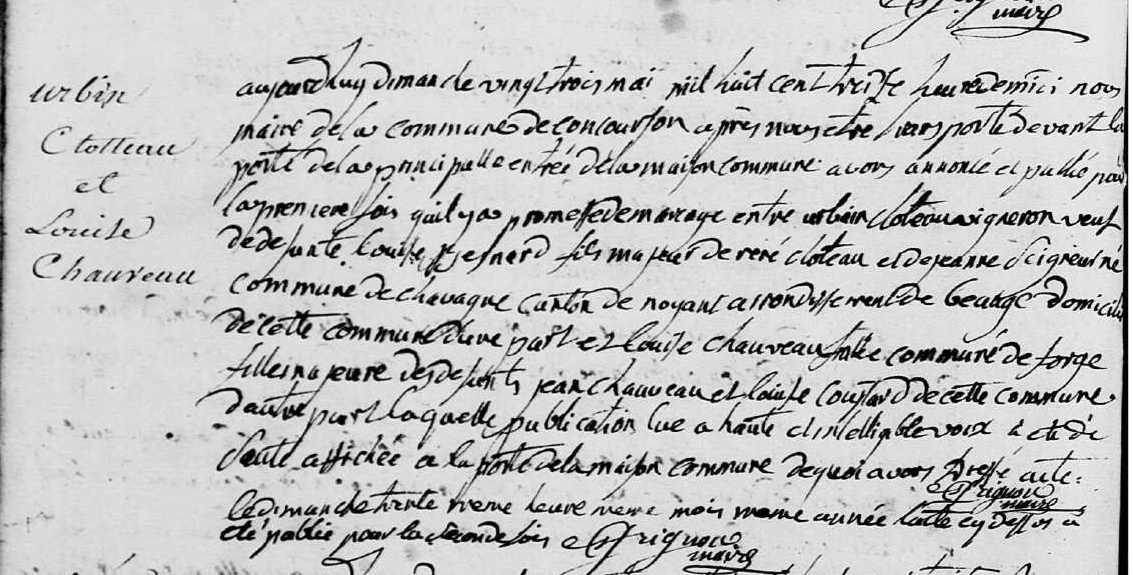 maire
urbin
Clotteau
et
Louise
Chauveau
aujourdhuy dimanche vingt trois mai mil huit cent treize heure de midi nous
maire de la commune de concourson après nous etre transporté devant la
porte de la principalle entrée de la maison commune avons annoncé et publié pour
la premiere fois quil y a promesse de mariage entre urbain cloteau vigneron veuf
de defunte Louise Besnard fils majeur de rené cloteau et de jeanne né
commune de chavagne canton de noyant arrondissement de beaugé domicilié
de cette commune d'une part et Louise chauveau née commune de forge
fille majeure des defunts jean chauveau et louise coustard de cette commune
d'autre part laquelle publication lue a haute et intelligible voix à été de
suite affichée a la porte de la maison commune de quoi avons dressé acte
Grignon
maire
le dimanche trente meme heure meme mois meme année lacte cy dessus a
eté publié pour la seconde fois Grignon
maire